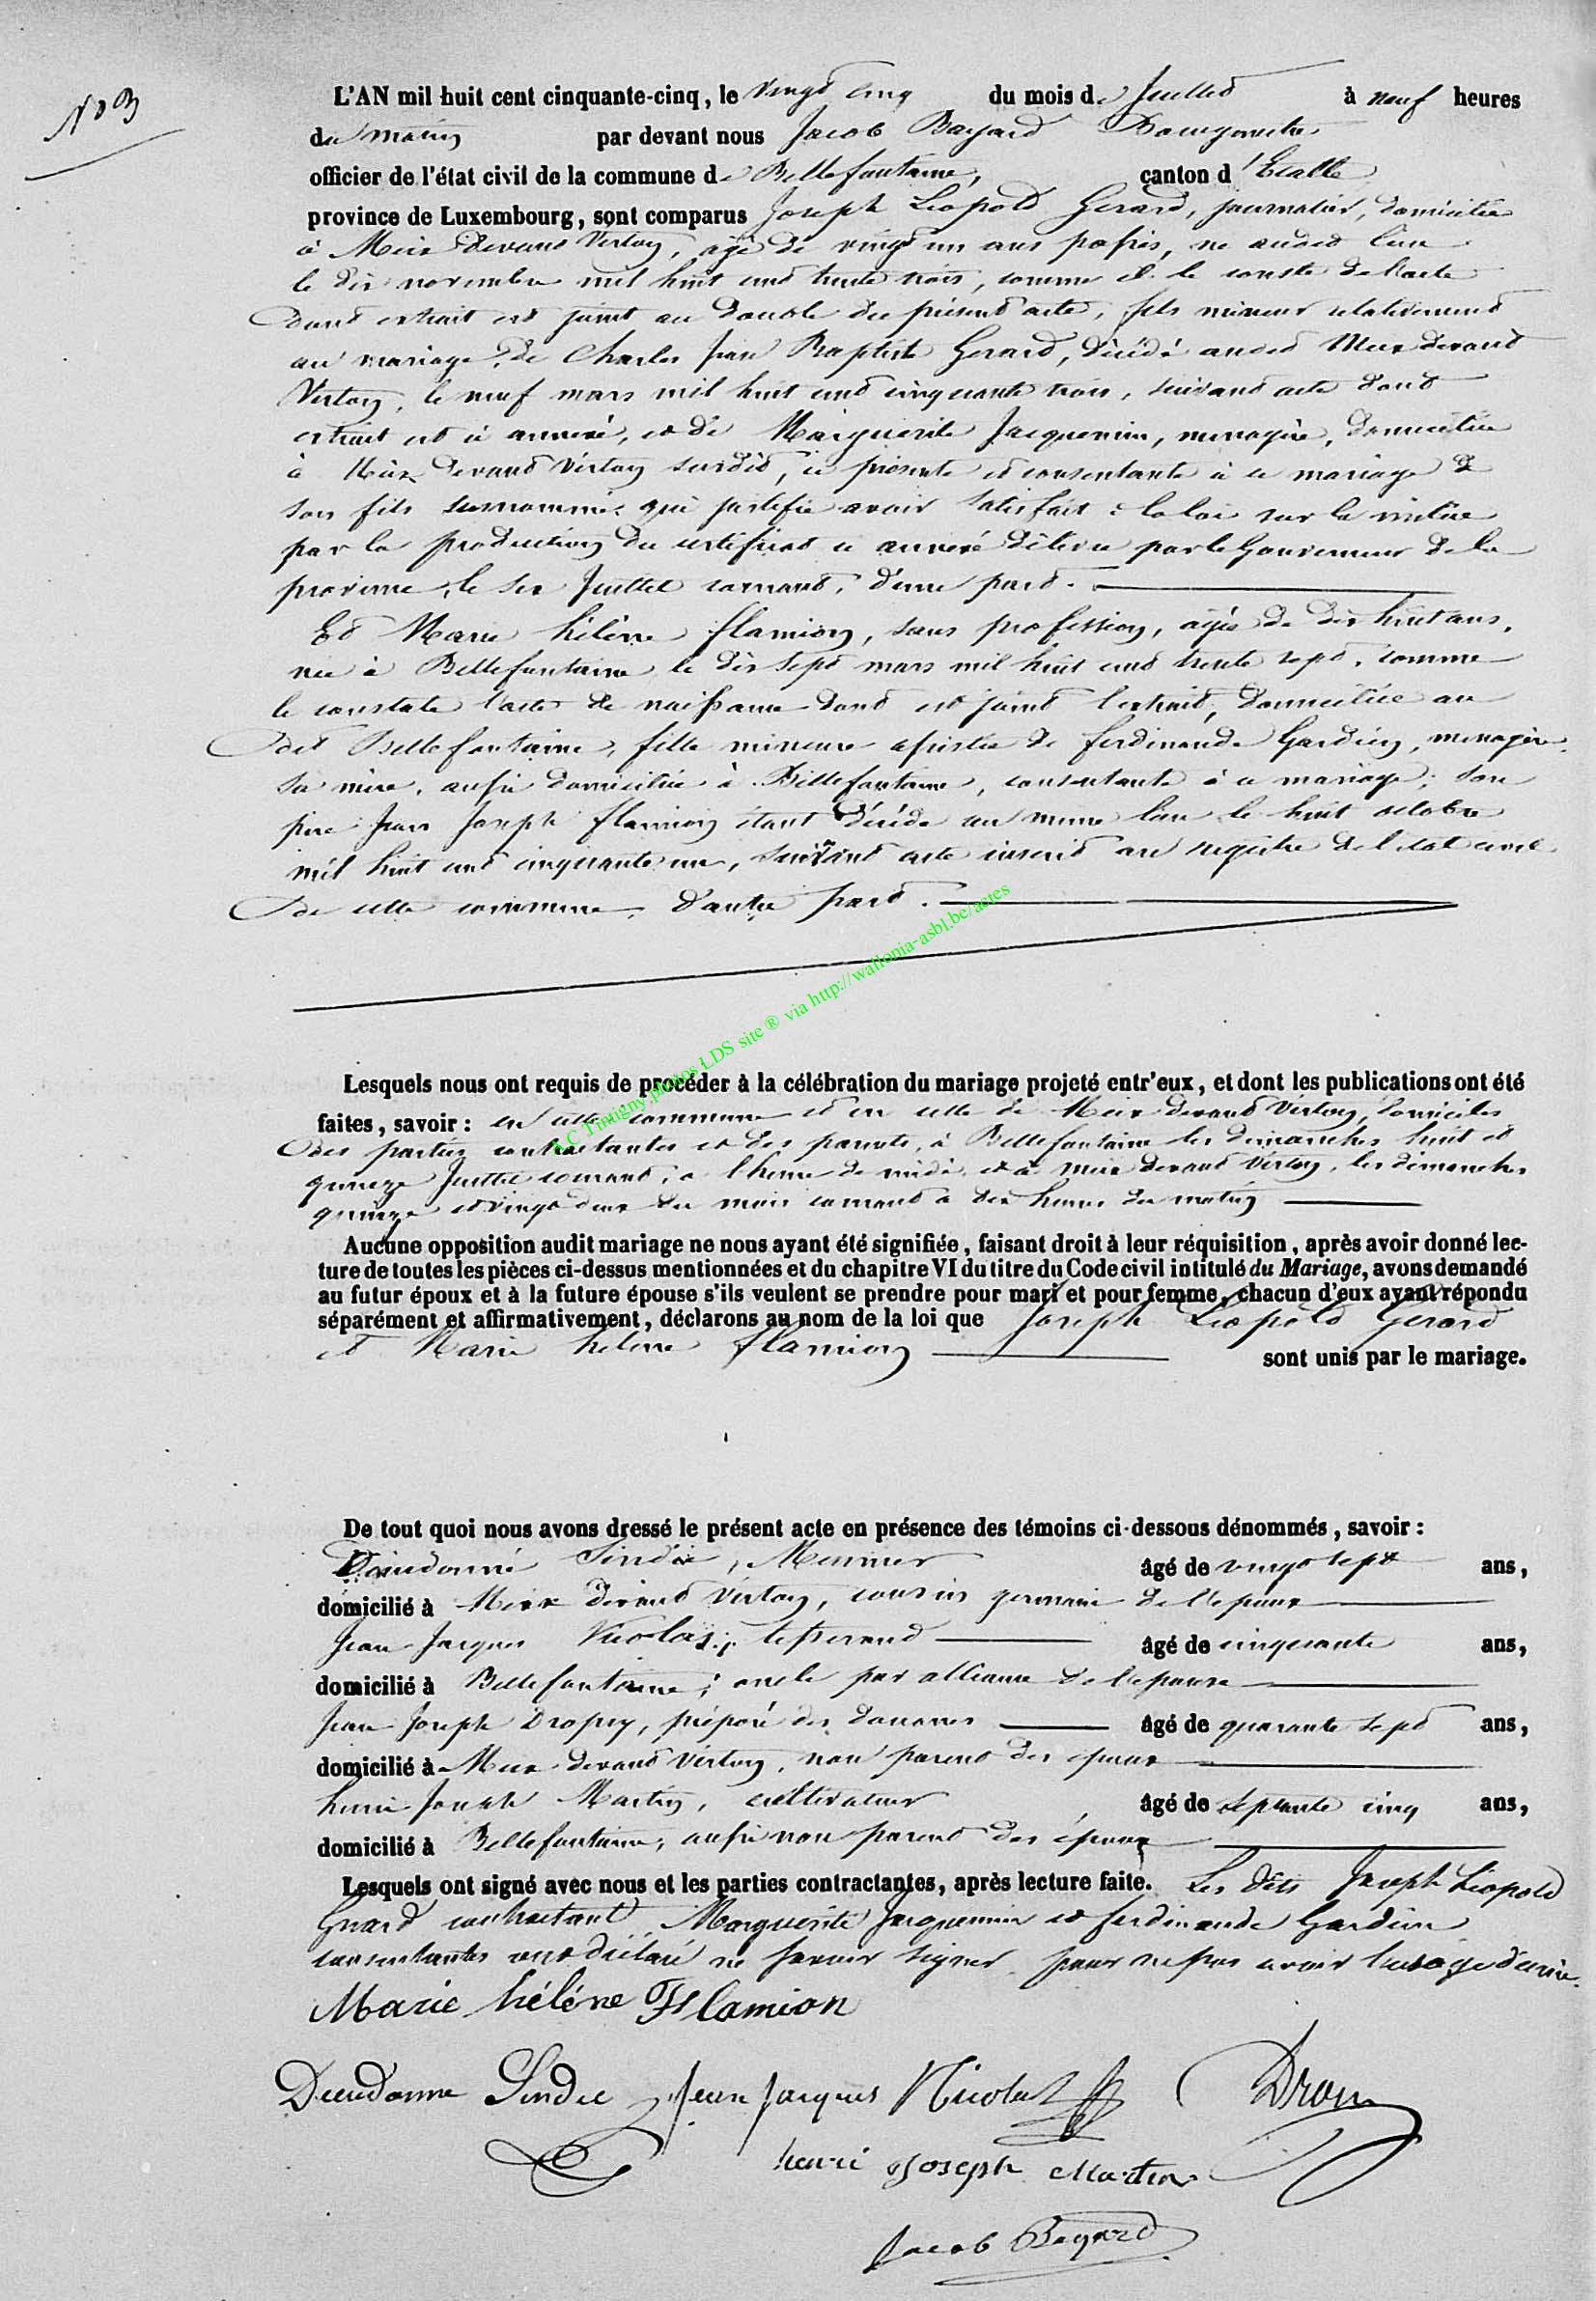 No 3
L'AN mil huit cent cinquante-cinq, le vingt cinq du mois de Juillet à neuf heures
du matin par devant nous Jacob Bayard Bourgmestre
officier de l'état civil de la commune de Bellefontaine, canton d'Etalle
province de Luxembourg, sont comparus Joseph Léopold Gerard, journalier, domicilié
à Meix devant Virton, âgé de vingt un ans passés, né audit lieu
le dix novembre mil huit cent trente trois, comme il le conste de l'acte
dont extrait est joint au double du présent acte, fils mineur relativement
au mariage, de Charles Jean Baptiste Gerard, décédé audit Meix devant
Virton, le neuf mars mil huit cent cinquante trois, suivant acte dont
extrait est ci annexé, et de Marguerite Jacquemin, menagère, domiciliée
à Meix devant Virton susdit, ci présente et consentante à ce mariage de
son fils surnommé, qui justifie avoir satisfait à la loi sur la milice
par la production du certificat ci annexé délivré par le Gouverneur de la
province, le six Juillet courant, d'une part.
Et Marie hélène flamion, sans profession, agée de dix huit ans,
née à Bellefontaine le dix sept mars mil huit cent trente sept, comme
le constate l'acte de naissance dont est joint l'extrait, domiciliée au
dit Bellefontaine, fille mineure assistée de ferdinande Gardien, menagère
sa mère, aussi domiciliée à Bellefontaine, consentante à ce mariage; son
père Jean Joseph flamion étant décédé au même lieu le huit octobre
mil huit cent cinquante un, suivant acte inscrit au registre de l'état civil
de cette commune, d'autre part.
A.C Tintigny photos LDS site ® via http://wallonia-asbl.be/actes
Lesquels nous ont requis de procéder à la célébration du mariage projeté entr'eux, et dont les publications ont été
faites, savoir : en cette commune et en celle de Meix devant Virton, domiciles
des parties contractantes et des parents, à Bellefontaine les dimanches huit et
quinze Juillet courant, à l'heure de midi, et à Meix devant Virton, les dimanches
quinze et vingt deux du mois courant à dix heures du matin
Aucune opposition audit mariage ne nous ayant été signifiée, faisant droit à leur réquisition, après avoir donné lec-
ture de toutes les pièces ci-dessus mentionnées et du chapitre VI du titre du Code civil intitulé du Mariage, avons demandé
au futur époux et à la future épouse s'ils veulent se prendre pour mari et pour femme, chacun d'eux ayant répondu
séparément et affirmativement, déclarons au nom de la loi que Joseph Léopold Gerard
et Marie hélène flamion sont unis par le mariage.
De tout quoi nous avons dressé le présent acte en présence des témoins ci-dessous dénommés, savoir :
Dieudonné Sindic, Meunier âgé de vingt sept ans,
domicilié à Meix devant Virton, cousin germain de l'époux
Jean Jacques Nicolas, tisserand âgé de cinquante ans,
domicilié à Bellefontaine, oncle par alliance de l'épouse
Jean Joseph préposé des douanes âgé de quarante sept ans,
domicilié à Meix devant Virton, non parent des époux
henri Joseph Martin, cultivateur âgé de septante cinq ans,
domicilié à Bellefontaine, aussi non parent des époux
Lesquels ont signé avec nous et les parties contractantes, après lecture faite. Les dits Joseph Léopold
Gerard contractant, Marguerite Jacquemin et ferdinande Gardien
consentantes ont déclaré ne savoir signer pour ne pas avoir l'usage d'écrire.
Marie hélène Flamion
Dieudonne Sindic Jean Jacques Nicolas
henri Joseph Martin
Jacob Bayard